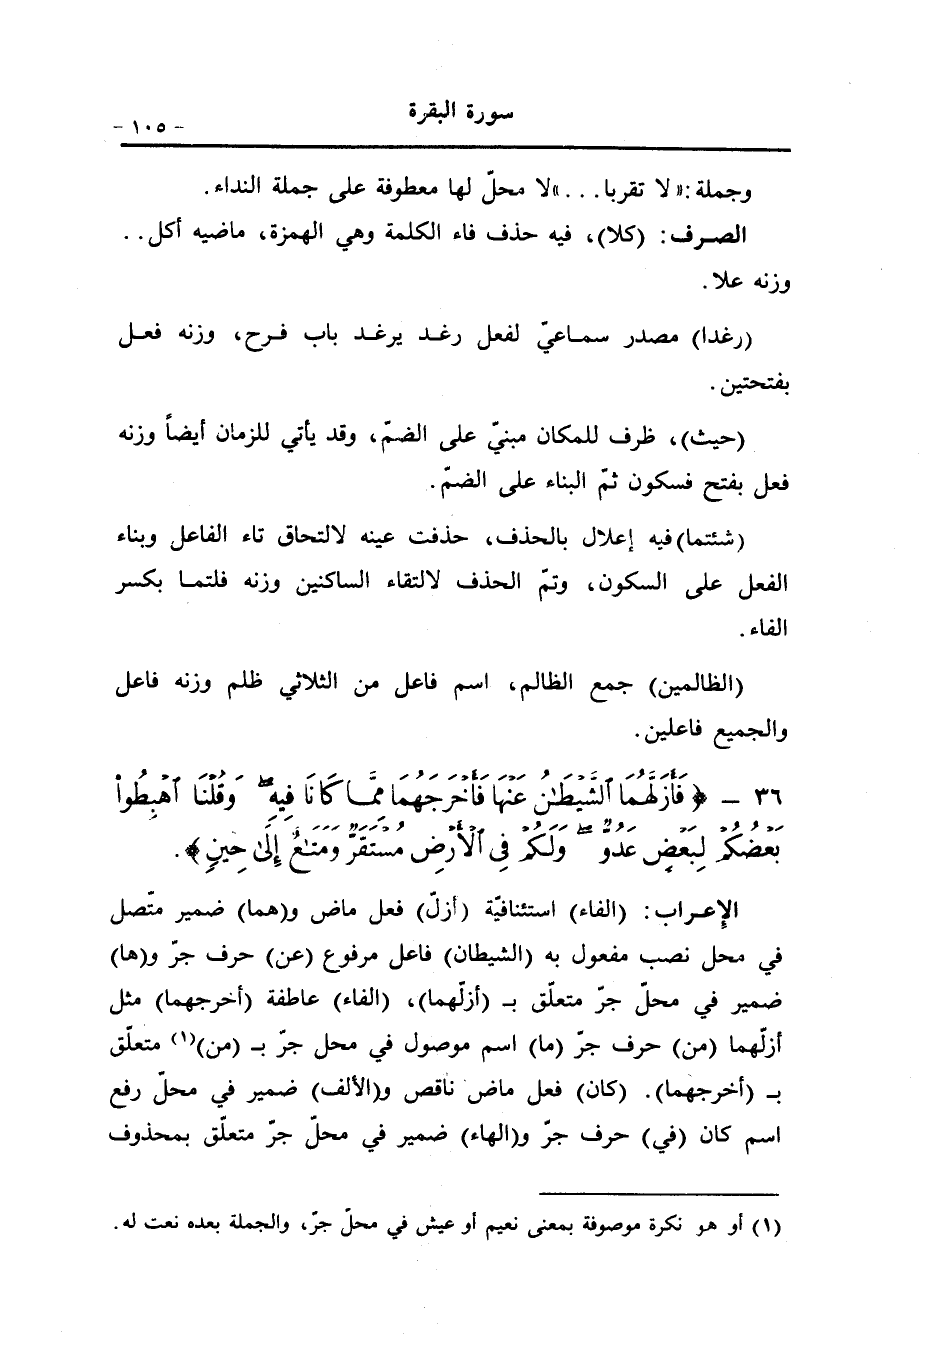 سورة البقرة
- ١٠٥ -
وجملة :« لا تقربا . . . »لا محلّ لها معطوفة على جملة النداء .
الصـرف : (كلا)، فيه حذف فاء الكلمة وهي الهمزة، ماضيه أكل . .
وزنه علا .
(رغدا) مصدر سمـاعيّ لفعل رغـد يرغـد باب فـرح، وزنه فعـل
بفتحتين .
(حيث)، ظرف للمكان مبنيّ على الضمّ، وقد يأتي للزمان أيضاً وزنه
فعل بفتح فسكون ثمّ البناء على الضمّ .
(شئتما)فيه إعلال بالحذف، حذفت عينه لالتحاق تاء الفاعل وبناء
الفعل على السكون، وتمّ الحذف لالتقاء الساكنين وزنه فلتمـا بكسر
الفاء .
(الظالمين) جمع الظالم، اسم فاعل من الثلاثي ظلم وزنه فاعل
والجميع فاعلين .
٣٦ - ﴿ فَأَزَلَّهُمَا ٱلشَّيْطَـٰنُ عَنْهَا فَأَخْرَجَهُمَا مِمَّا كَانَا فِيهِ ۖ وَقُلْنَا ٱهْبِطُوا۟
بَعْضُكُمْ لِبَعْضٍ عَدُوٌّ ۖ وَلَكُمْ فِى ٱلْأَرْضِ مُسْتَقَرٌّ وَمَتَـٰعٌ إِلَىٰ حِينٍ ﴾ .
الإعـراب : (الفاء) استئنافيّة (أزلّ) فعل ماض و(هما) ضمير متّصل
في محل نصب مفعول به (الشيطان) فاعل مرفوع (عن) حرف جرّ و(ها)
ضمير في محلّ جرّ متعلّق بـ (أزلّهما)، (الفاء) عاطفة (أخرجهما) مثل
أزلّهما (من) حرف جرّ (ما) اسم موصول في محل جرّ بـ (من)(١) متعلّق
بـ (أخرجهما). (كان) فعل ماض ناقص و(الألف) ضمير في محلّ رفع
اسم كان (في) حرف جرّ و(الهاء) ضمير في محلّ جرّ متعلّق بمحذوف
(١) أو هو نكرة موصوفة بمعنى نعيم أو عيش في محلّ جرّ، والجملة بعده نعت له .